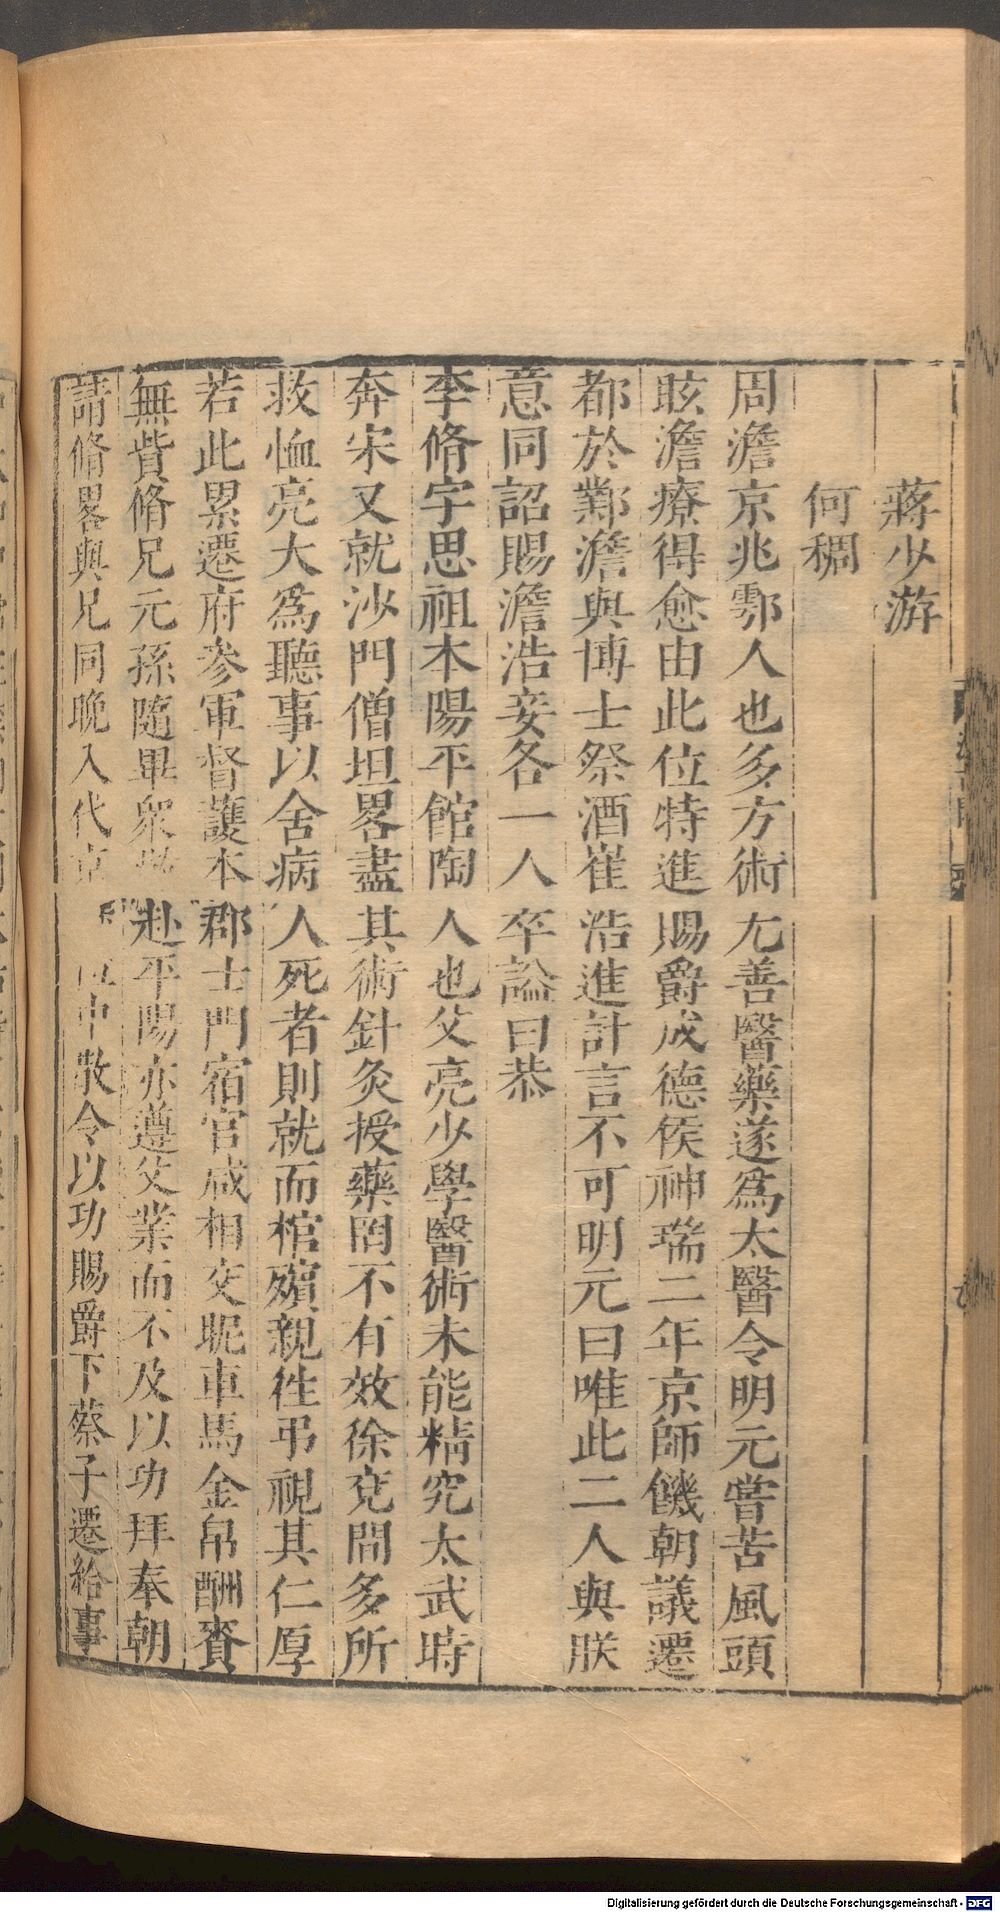 蔣少游
何稠
周澹京兆鄠人也多方術尤善醫藥遂爲太醫令明元嘗苦風頭
眩澹療得愈由此位特進賜爵成德侯神瑞二年京師饑朝議遷
都於鄴澹與博士祭酒崔浩進計言不可明元曰唯此二人與朕
意同詔賜澹浩妾各一人卒謚曰恭
李脩字思祖本陽平館陶人也父亮少學醫術未能精究太武時
奔宋又就沙門僧坦畧盡其術針灸授藥罔不有效徐兗間多所
救恤亮大爲聽事以舍病人死者則就而棺殯親徃弔視其仁厚
若此累遷府參軍督護本郡士門宿官咸相交昵車馬金帛酬賚
無貲脩兄元孫隨畢衆赴平陽亦遵父業而不及以功拜奉朝
請脩畧與兄同晚入代京中散令以功賜爵下蔡子遷給事
Digitalisierung gefördert durch die Deutsche Forschungsgemeinschaft - DFG